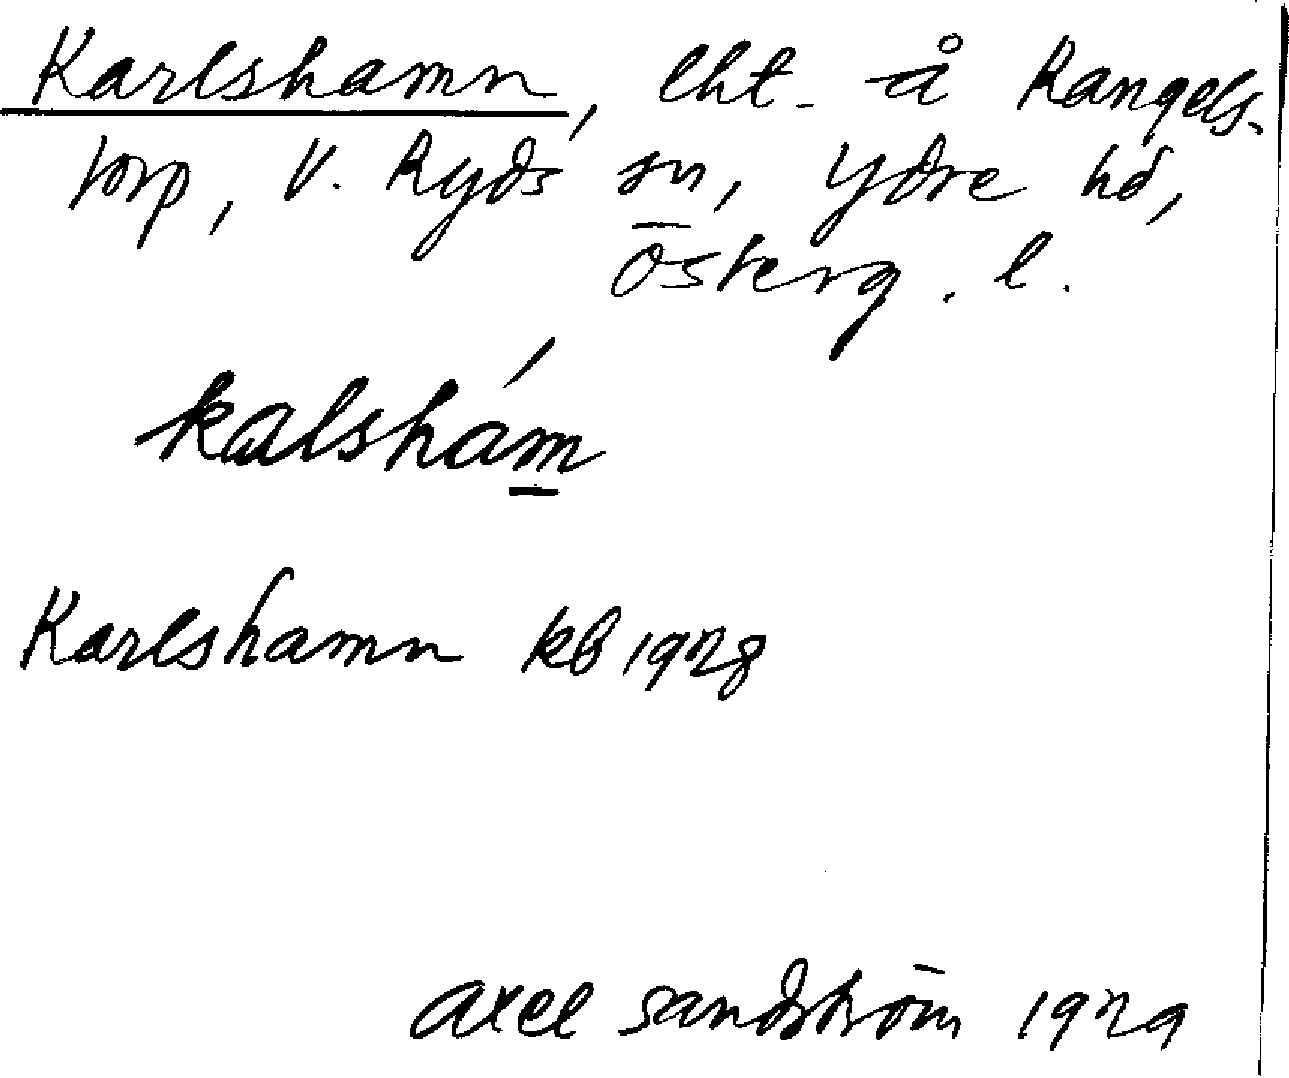 Karlshamn, lht. å Rangels-
torp, V. Ryds sn, Ydre hd,
Österg. l.
kalshám
Karlshamn kb 1928
Axel Sandström 1929